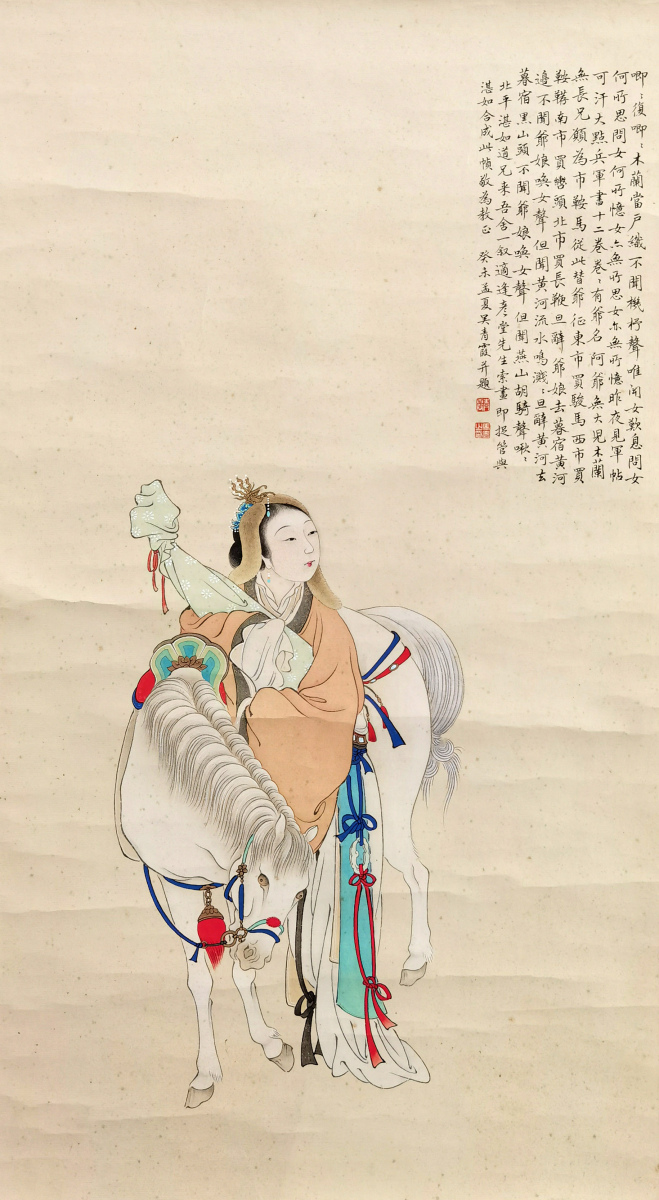 唧〻復唧〻木蘭當戶織不聞機杼聲唯聞女歎息問女
何所思問女何所憶女亦無所思女亦無所憶昨夜見軍帖
可汗大點兵軍書十二卷卷〻有爺名阿爺無大兒木蘭
無長兄願為市鞍馬從此替爺征東市買駿馬西市買
鞍韉南市買轡頭北市買長鞭旦辭爺娘去暮宿黃河
邊不聞爺娘喚女聲但聞黃河流水鳴濺〻旦辭黃河去
暮宿黑山頭不聞爺娘喚女聲但聞燕山胡騎聲啾〻
北平湛如道兄來吾舍一敘適逢彥堂先生索畫即捉管與
湛如合成此幀敬為教正 癸未孟夏吳青霞并題